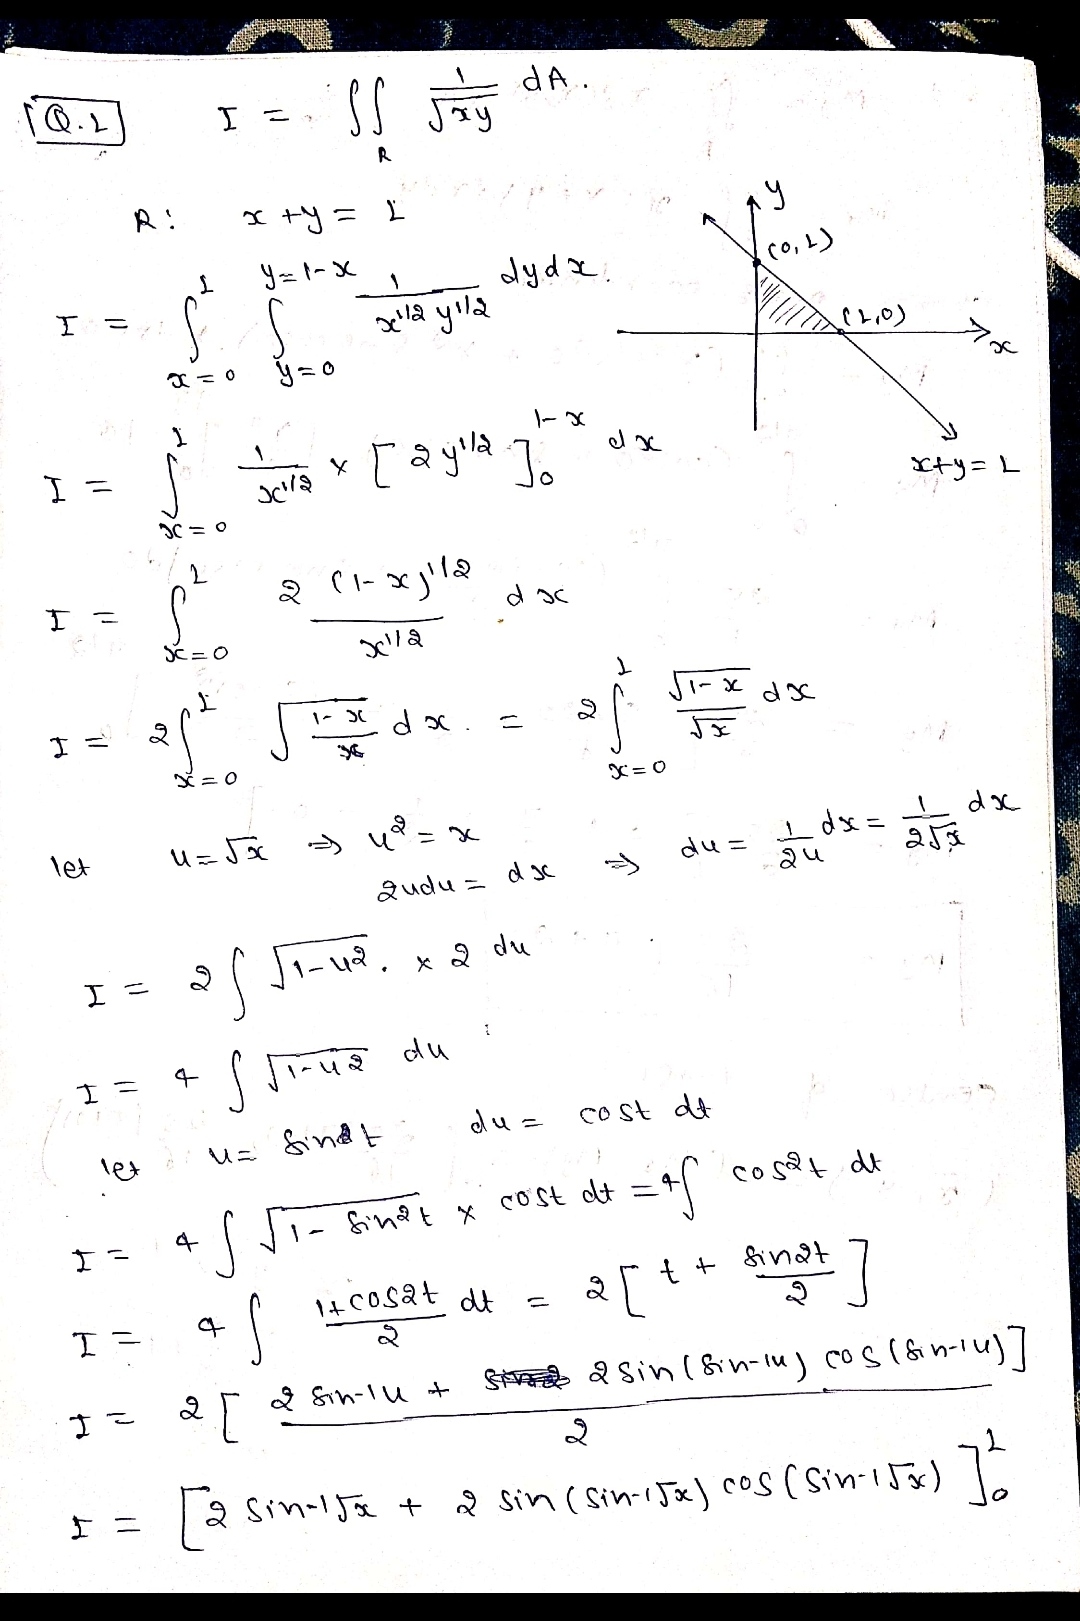 Q.1 I = ∬_R 1/√xy dA.
y
(0,1)
(1,0)
x
x+y=1
R: x+y = 1
I = ∫_{x=0}^{1} ∫_{y=0}^{y=1-x} 1/(x^{1/2} y^{1/2}) dydx.
I = ∫_{x=0}^{1} 1/x^{1/2} × [2y^{1/2}]_0^{1-x} dx
I = ∫_{x=0}^{1} 2(1-x)^{1/2}/x^{1/2} dx
I = 2∫_{x=0}^{1} √((1-x)/x) dx. = 2∫_{x=0}^{1} √(1-x)/√x dx
let u=√x ⇒ u²=x
2udu = dx ⇒ du = 1/2u dx = 1/2√x dx
I = 2∫ √(1-u²). × 2 du
I = 4∫ √(1-u²) du
let u= sint du = cost dt
I = 4∫ √(1-sin²t) × cost dt = 4∫ cos²t dt
I = 4∫ (1+cos2t)/2 dt = 2[t + sin2t/2]
I = 2[(2 sin-1u + 2sin(sin-1u) cos(sin-1u))/2]
I = [2 sin-1√x + 2 sin(sin-1√x) cos(sin-1√x)]_0^1